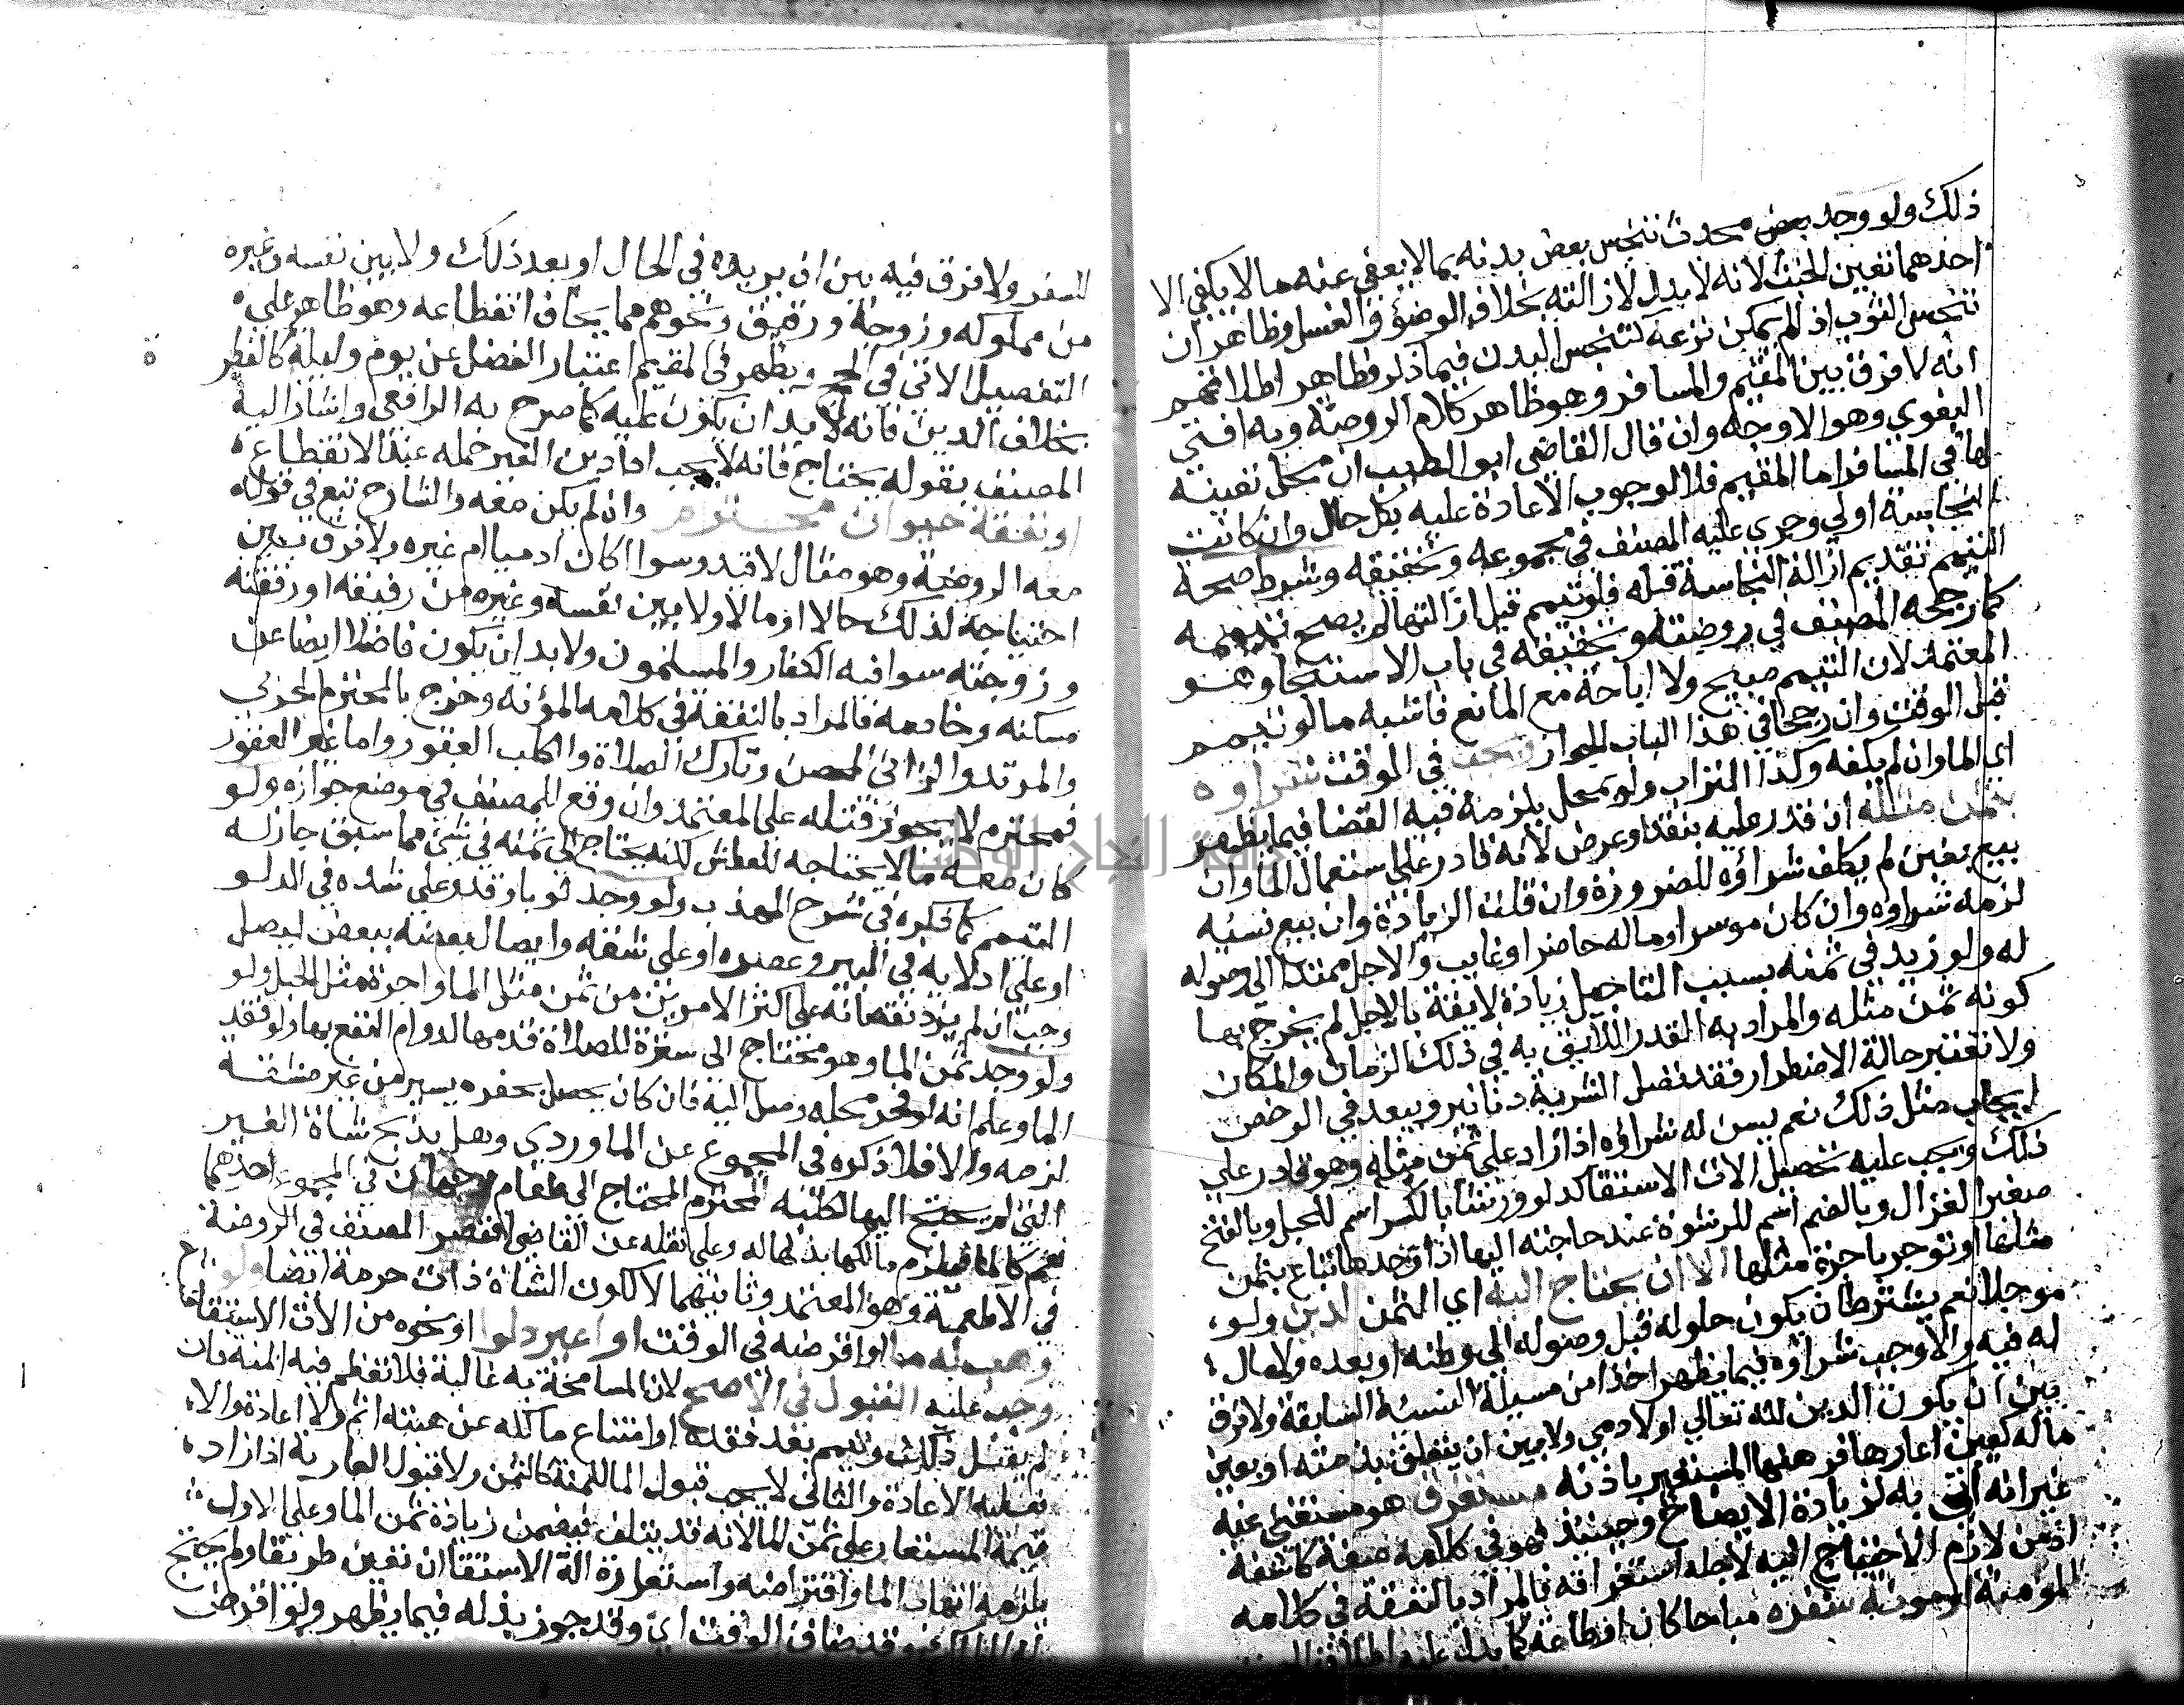 ذلك ولو وجد بعض محدث تنجس بعض بدنه بما لا يعفى عنه ما لا يكفي الا
احدهما تعين للخبث لانه لا بدل لازالته بخلاف الوضوء والغسل وظاهر ان
تنجس الثوب اذ لم يمكن نزعه كتنجس البدن فيما ذكر وظاهر اطلاقهم
انه لا فرق بين المقيم والمسافر وهو ظاهر كلام الروضة وبه افتى
البغوي وهو الاوجه وان قال القاضي ابو الطيب ان محل تعينه
لها في المسافر اما المقيم فلا لوجوب الاعادة عليه بكل حال وان كانت
النجاسة اولى وجرى عليه المصنف في مجموعه وتحقيقه وشرط صحة
التيمم تقديم ازالة النجاسة قبله فلو تيمم قبل ازالتها لم يصح تيممه
كما رجحه المصنف في روضته وتحقيقه في باب الاستنجا وهو
المعتمد لان التيمم مبيح ولا اباحة مع المانع فاشبه ما لو تيمم
قبل الوقت وان رجحا في هذا الباب الجواز ويجب في الوقت شراوه
اي الما وان لم يكفه وكذا التراب ولو بمحل يلزمه فيه القضا فيما يظهر
بثمن مثله ان قدر عليه بنقد او عرض لانه قادر على استعمال الما وان
بيع بغبن لم يكلف شراؤه للضرورة وان قلت الزيادة وان بيع نسيه
لزمه شراوه وان كان موسرا وماله حاضر او غايب والاجل ممتد الى وصوله
له ولو زيد في ثمنه بسبب التاجيل زيادة لايقة بالاجل لم يخرج بها
كونه ثمن مثله والمراد به القدر اللايق به في ذلك الزمان والمكان
ولا تعتبر حالة الاضطرار فقد تفضل الشربة دنانير ويبعد في الرخص
ايجاب مثل ذلك نعم يسن له شراؤه اذا زاد على ثمن مثله وهو قادر على
ذلك ويجب عليه تحصيل الات الاستقا كدلو ورشا بالكسر اسم للحبل وبالفتح
صغير الغزال وبالضم اسم للرشوة عند حاجته اليها اذا وجدها تباع بثمن
مثلها او توجر باجرة مثلها الا ان يحتاج اليه اي الثمن لدين ولو
موجلا نعم يشترط ان يكون حلوله قبل وصوله الى وطنه او بعده ولا مال
له فيه والا وجب شراؤه فيما يظهر اخذا من مسيلة النسيئة السابقة ولا فرق
بين ان يكون الدين لله تعالى او لادمي ولا بين ان يتعلق بذمته او بعين
ماله كعين اعارها فرهنها المستعير باذنه مستغرق هو مستغنى عنه
غير انه اتى به لزيادة الايضاح وحينئذ فهو في كلامه صفة كاشفة
اذ من لازم الاحتياج اليه لاجله استغراقه فالمراد بالنفقة في كلامه
المؤمنة او مونة سفره مباحا كان او طاعة كما يدل عليه
السفر ولا فرق فيه بين ان يريده في الحال او بعد ذلك ولا بين نفسه وغيره
من مملوكه وزوجة ورفيق ونحوهم مما يخاف انقطاعه وهو ظاهر على
التفصيل الاتي في الحج ويظهر في المقيم اعتبار الفضل عن يوم وليلة كالفطر
بخلاف الدين فانه لا بد ان يكون عليه كما صرح به الرافعي واشار اليه
المصنف بقوله يحتاج فانه لا يجب ادا دين الغير حمله عند الانقطاع
او نفقة حيوان محترم وان لم يكن معه والشارح تبع في قوله
معه الروضة وهو مثال لا قيد وسوا اكان ادميا ام غيره ولا فرق بين
احتياجه لذلك حالا او مالا ولا بين نفسه وغيره من رفيقه او رقيقه
وزوجته سوا فيه الكفار والمسلمون ولا بد ان يكون فاضلا ايضا عن
مسكنه وخادمه فالمراد بالنفقة في كلامه المؤنة وخرج بالمحترم الحربي
والمرتد والزاني المحصن وتارك الصلاة والكلب العقور واما غير العقور
فمحترم لا يجوز قتله على المعتمد وان وقع للمصنف في موضع جوازه ولو
كان معه ما لا يحتاجه للعطش لكنه يحتاج الى ثمنه في شي مما سبق جاز له
التيمم كما ذكره في شرح المهذب ولو وجد ثوبا وقدر على شده في الدلو
او على ادلايه في البير وعصره او على شقه وايصال بعضه ببعض ليصل
وجب ان لم يزد نقصانه على اكثر الامرين من ثمن مثل الما واجرة مثل الحبل ولو
ولو وجد ثمن الما وهو محتاج الى سترة للصلاة قدمها لدوام النفع بها ولو فقد
الما وعلم انه لو حفر محله وصل اليه فان كان يحصل بحفره يسير من غير مشقة
لزمه والا فلا ذكره في المجموع عن الماوردي وهل يذبح شاة الغير
التي لم يحتج اليها لكلبه المحترم المحتاج الى طعام وجهان في المجموع احدهما
نعم كالما فيلزم مالكها بذلها له وعلى نقله عن القاضي اقتصر المصنف في الروضة
في الاطعمة وهو المعتمد وثانيهما لا لكون الشاة ذات حرمة ايضا ولو
وهب له ما او اقرضه في الوقت او اعير دلوا او نحوه من الات الاستقا
وجب عليه القبول في الاصح لان المسامحة به غالبة فلا تعظم فيه المنة فان
لم يقبل ذلك وتيمم بعد فقده او امتناع مالكه من هبته اثم ولا اعادة والا
فعليه الاعادة والثاني لا يجب قبول الما للمنة كالثمن ولا قبول العارية اذا زاد
قيمة المستعار على ثمن الما لانه قد يتلف فيضمن زيادة ثمن الما وعلى الاول
يلزمه اتهاب الما واقتراضه واستعارة الة الاستقا ان تعين طريقا ولم يحتج
له المالك وقد ضاق الوقت اي وقد جوز بذله فيما يظهر ولو اقرض